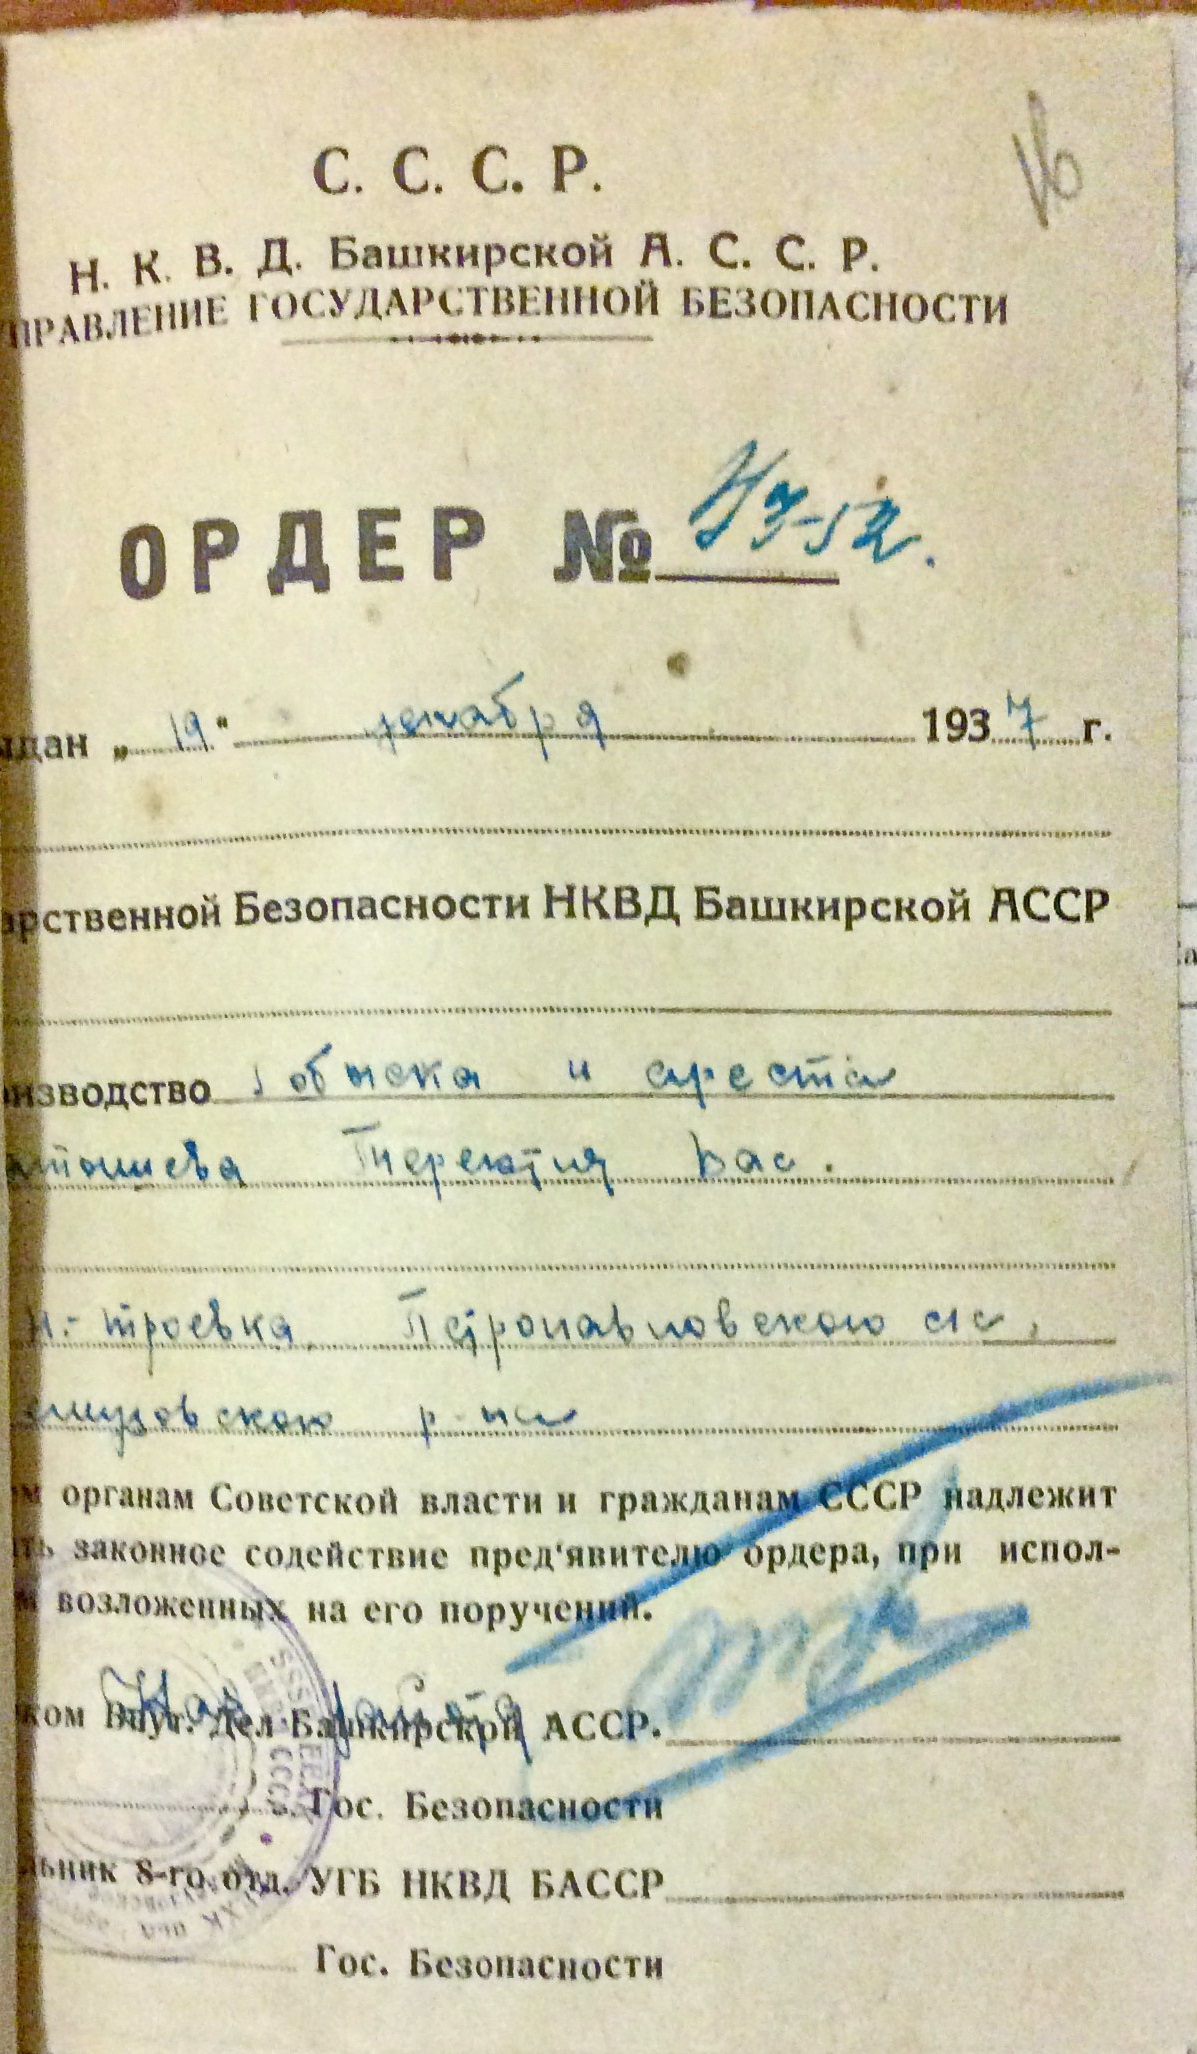 16
С. С. С. Р.
Н. К. В. Д. Башкирской А. С. С. Р.
ПРАВЛЕНИЕ ГОСУДАРСТВЕННОЙ БЕЗОПАСНОСТИ
ОРДЕР №
дан „ 19 " декабря 1937 г.
рственной Безопасности НКВД Башкирской АССР
изводство обыска и ареста
Терентия Вас.
троевка Петропавловского с/с,
р-на
м органам Советской власти и гражданам СССР надлежит
ть законное содействие пред'явителю ордера, при испол-
м возложенных на его поручений.
ком Внут. Дел Башкирской АССР.
Гос. Безопасности
льник 8-го отд. УГБ НКВД БАССР
Гос. Безопасности